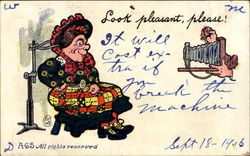 W me
Look pleasant, please!
It will
cost ex-
tra if
you
break the
machine
Sept 18 - 1906
D A65 All rights reserved